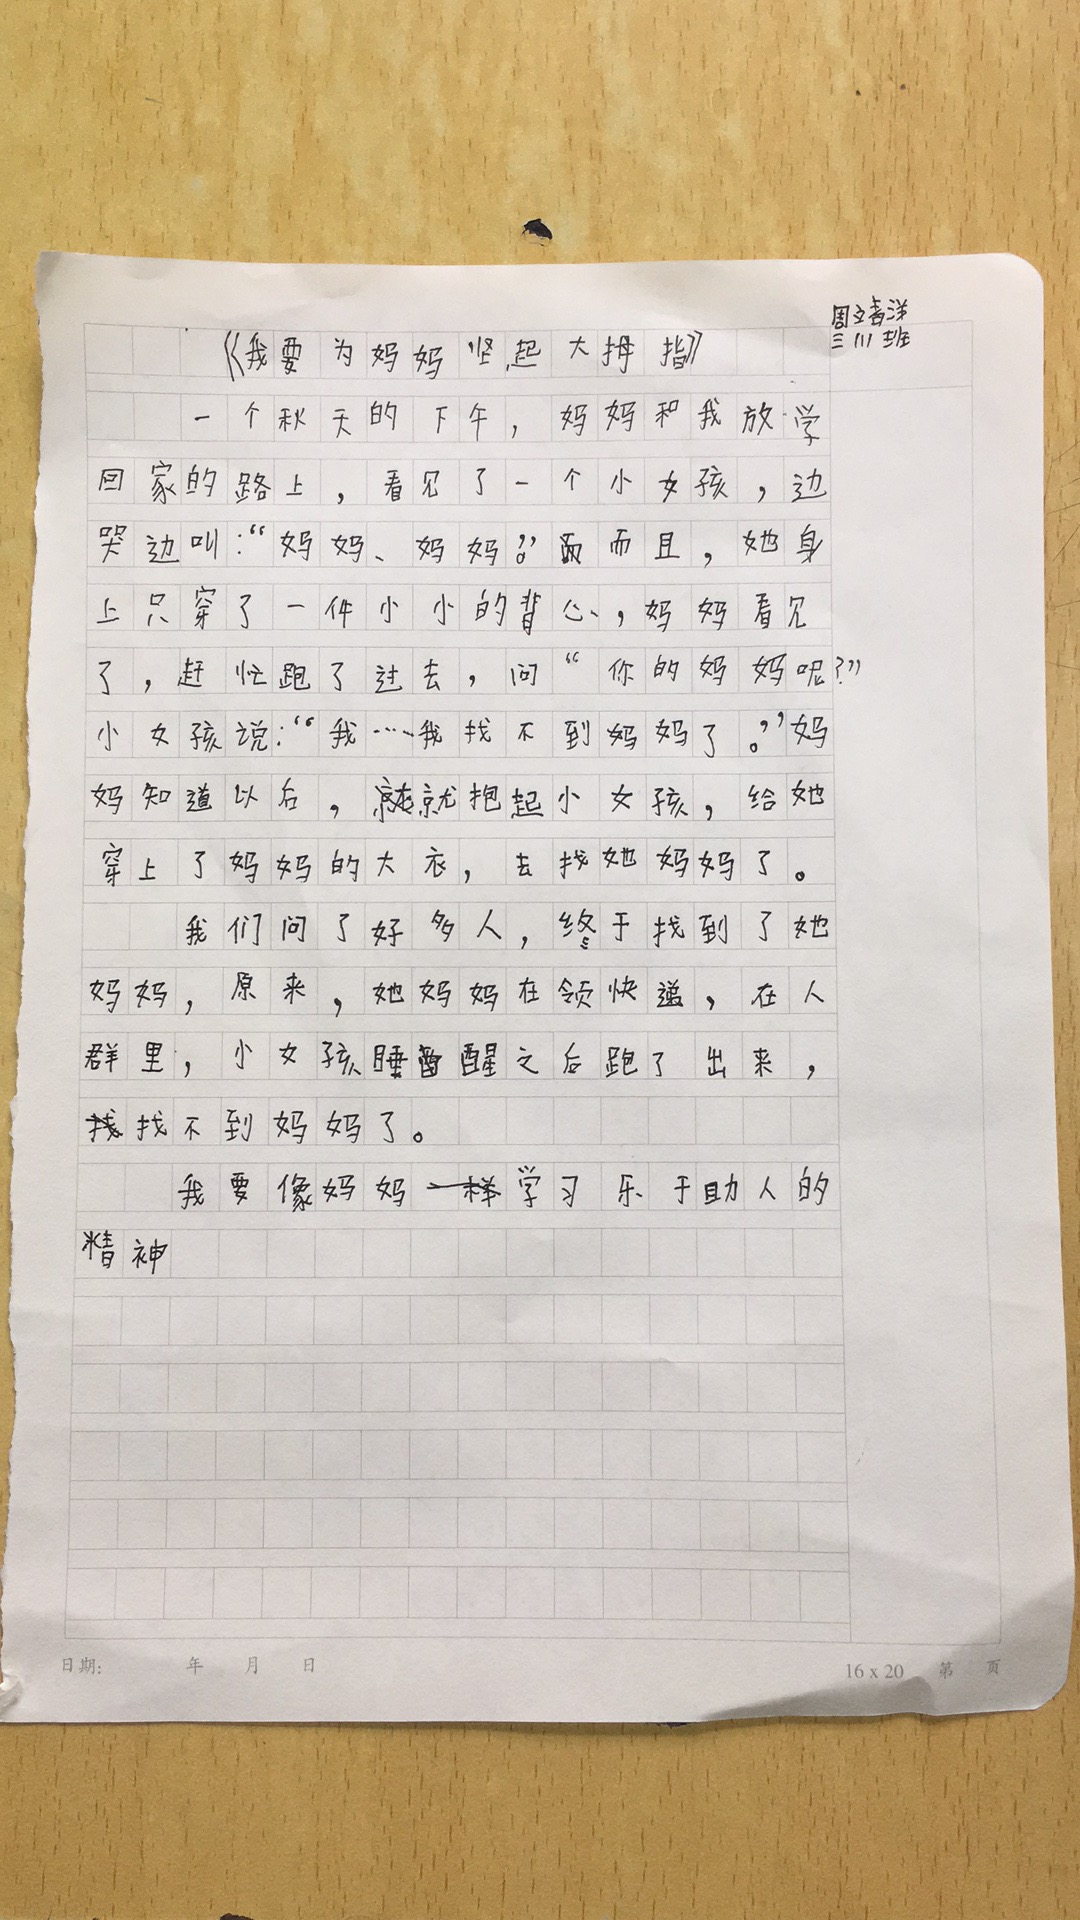 周文
三(1)班
《我要为妈妈竖起大拇指》
一个秋天的下午，妈妈和我放学
回家的路上，看见了一个小女孩，边
哭边叫：“妈妈、妈妈。”而且，她身
上只穿了一件小小的背心，妈妈看见
了，赶忙跑了过去，问“你的妈妈呢？”
小女孩说：“我……我找不到妈妈了。”妈
妈知道以后，就抱起小女孩，给她
穿上了妈妈的大衣，去找她妈妈了。
我们问了好多人，终于找到了她
妈妈，原来，她妈妈在领快递，在人
群里，小女孩睡醒之后跑了出来，
找不到妈妈了。
我要像妈妈学习乐于助人的
精神
日期： 年 月 日
16 x 20 第 页